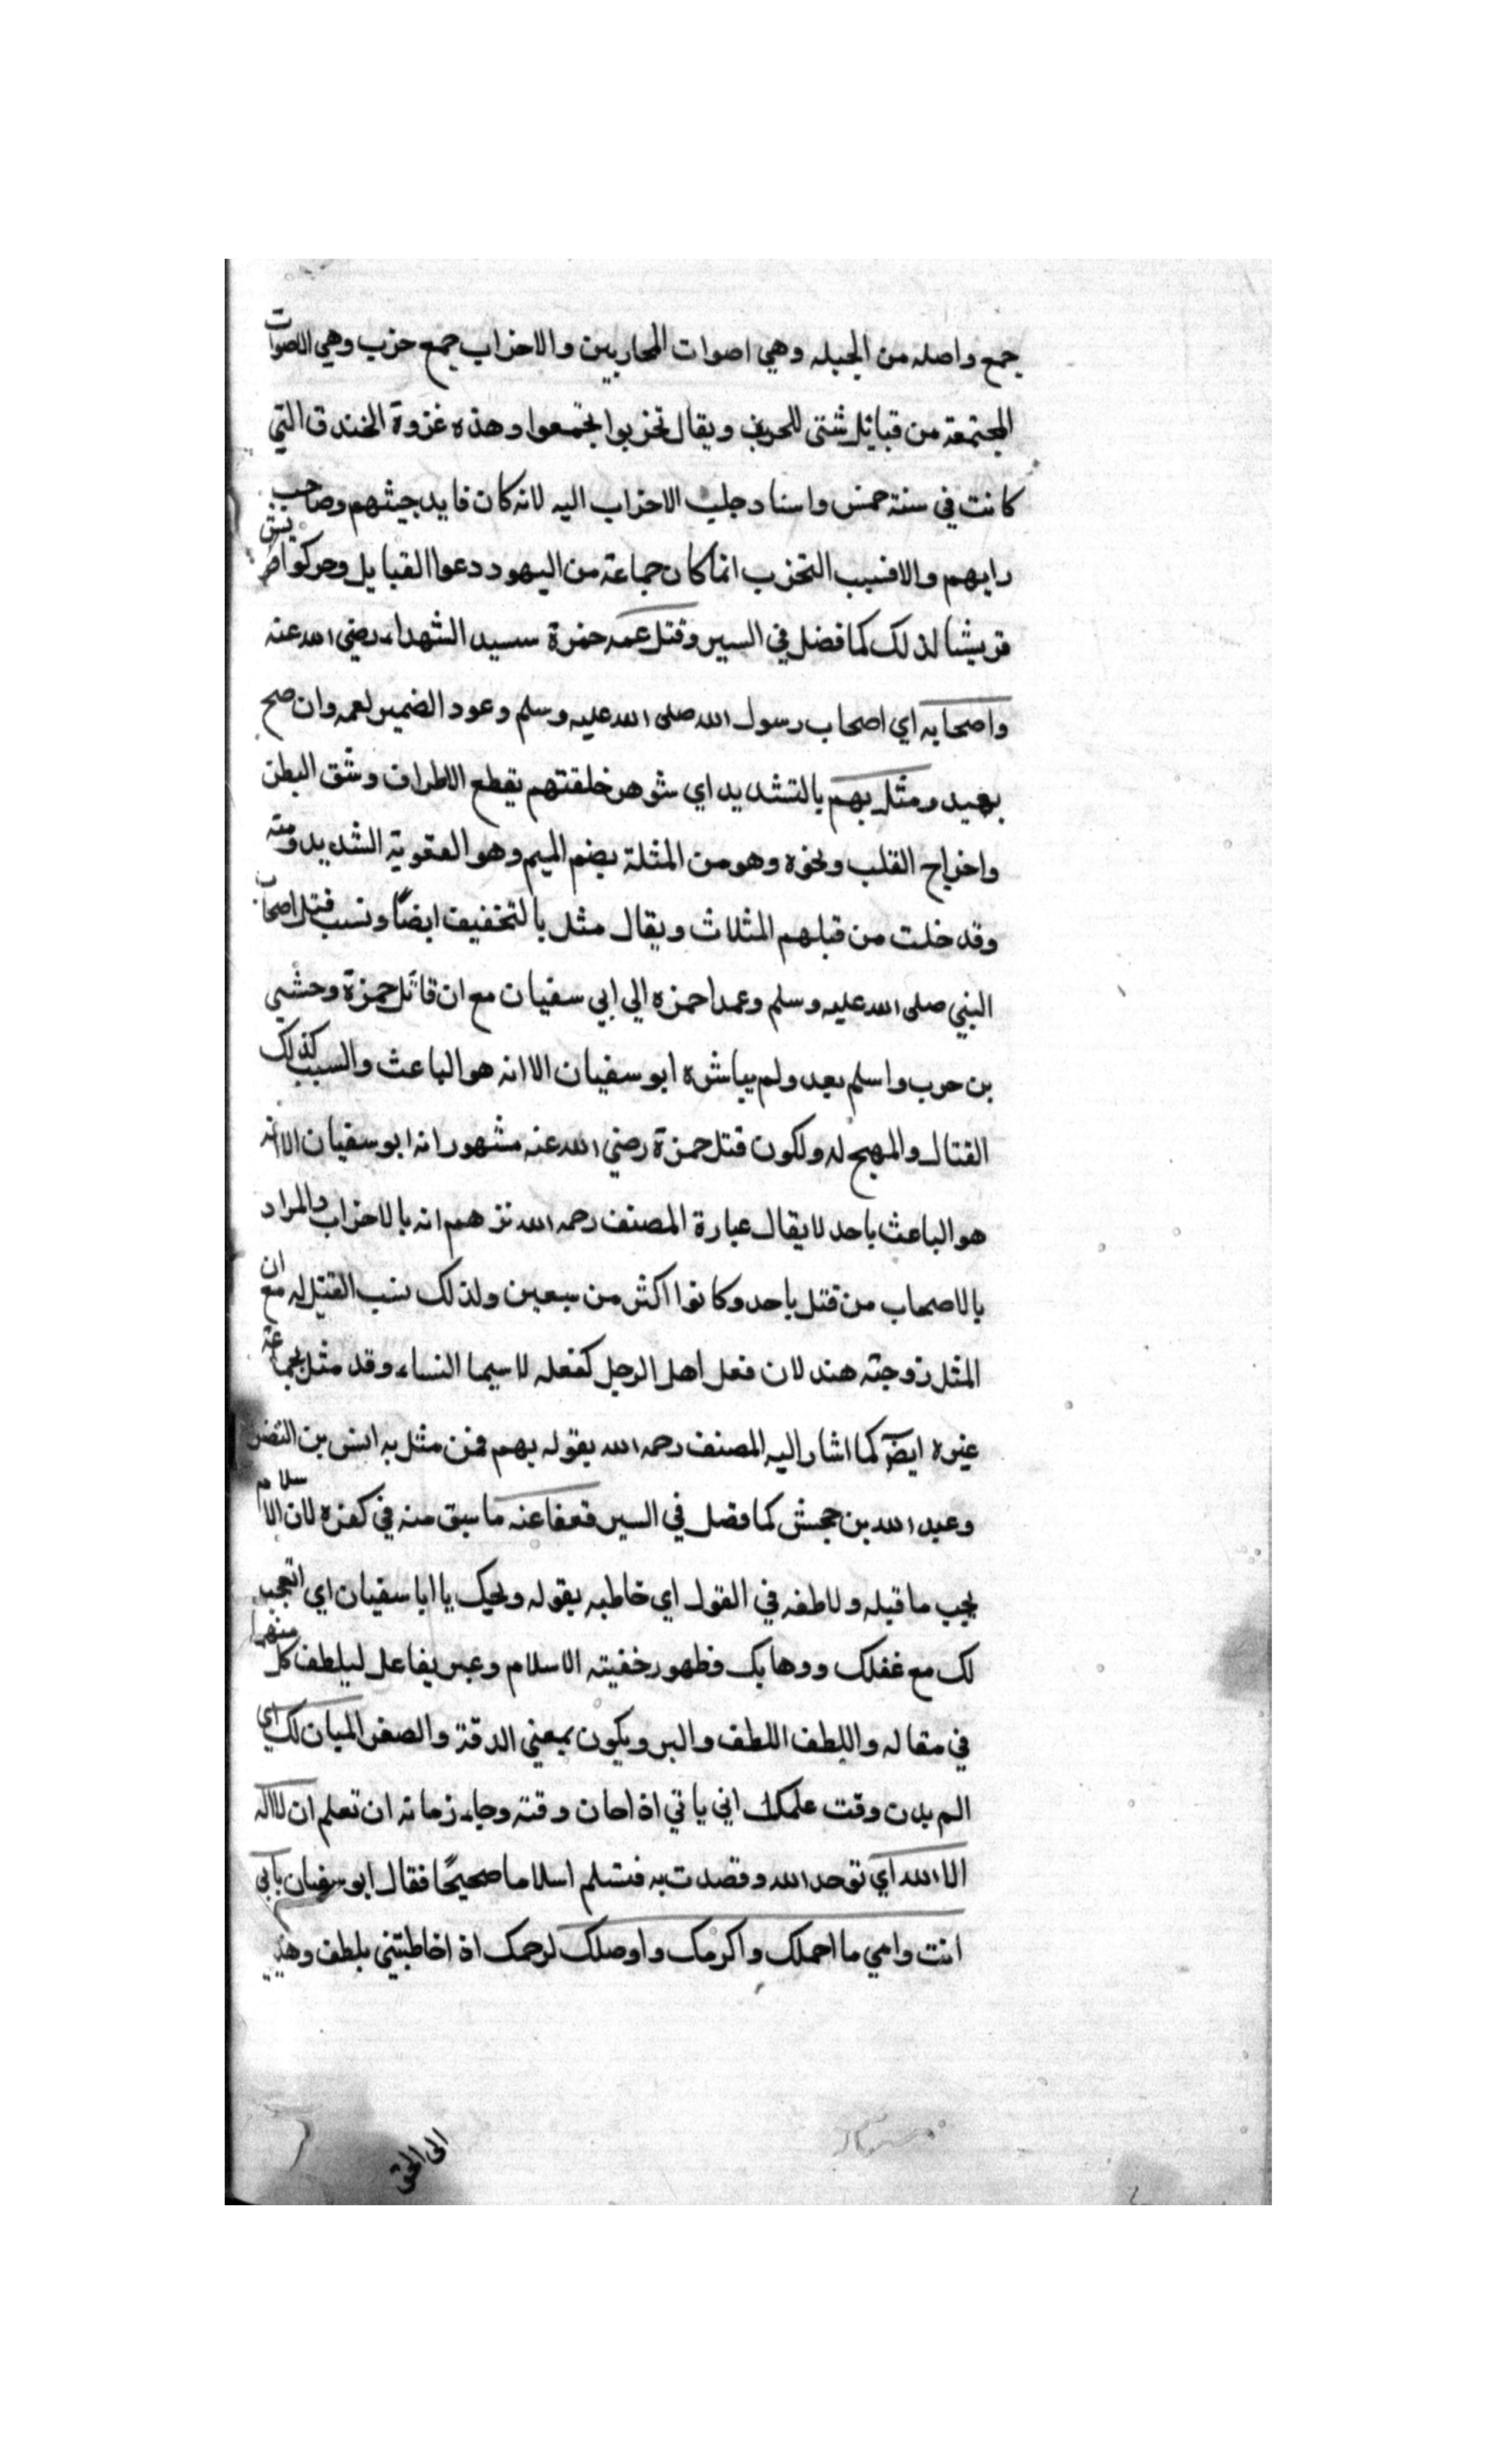 جمع واصله من الجبله وهي اصوات المحاربين والاحزاب جمع حزب وهي الاصوات
المجتمعة من قبائل شتى للحرب ويقال تحزبوا تجمعوا وهذه غزوة الخندق التي
كانت في سنة خمس واسناد جلب الاحزاب اليه لانه كان قايد جيشهم وصاحب
رايهم والا فسبب التحزب انما كان جماعة من اليهود دعوا القبايل وحركوا
قريشا لذلك كما فضل في السير وقتل عمه حمزة سيد الشهداء رضي الله عنه
واصحابه اي اصحاب رسول الله صلى الله عليه وسلم وعود الضمير لعمه وان صح
بعيد ومثل بهم بالتشديد اي شوه خلقتهم بقطع الاطراف وشق البطن
واخراج القلب ونحوه وهو من المثلة بضم الميم وهو العقوبة الشديد ومنه
وقد خلت من قبلهم المثلات ويقال مثل بالتخفيف ايضًا ونسب قتل اصحاب
النبي صلى الله عليه وسلم وعمه احمزه الي ابي سفيان مع ان قاتل حمزة وحشي
بن حرب واسلم بعد ولم يباشره ابو سفيان الا انه هو الباعث والسبب كذلك
القتال والمهيج له ولكون قتل حمزة رضي الله عنه مشهور انه ابو سفيان الا انه
هو الباعث باحد لا يقال عبارة المصنف رحمه الله انه بالاحزاب والمراد
بالاصحاب من قتل باحد وكانوا اكثر من سبعين ولذلك نسب القتل له مع ان
المثل زوجته هند لان فعل اهل الرجل كفعله لا سيما النساء وقد مثل بجماعة
غيره ايضَ كما اشار اليه المصنف رحمه الله بقوله بهم فمن مثل به انس بن النضر
وعبد الله بن جحش كما فضل في السير فعفا عنه ما سبق منه في كفره لان الاسلام
يجب ما قبله ولاطفه في القول اي خاطبه بقوله ويحيك يا ابا سفيان اي اتعجب
لك مع غفلك ودهابك وظهور خفيته الاسلام وعبر بفاعل ليلطف كل منهما
في مقاله واللطف اللطف والبر ويكون بمعني الدقة والصغر الميان لك اي
الم يدن وقت علمك اني ياتي اذا حان وقته وجاء زمانه ان تعلم ان لا اله
الا الله اي توحد الله وقصدت به فتسلم اسلاما صحيحًا فقال ابو سفيان بابي
انت وامي ما احملك واكرمك واوصلك لرحمك اذ اخاطبتني بلطف
الى الحق